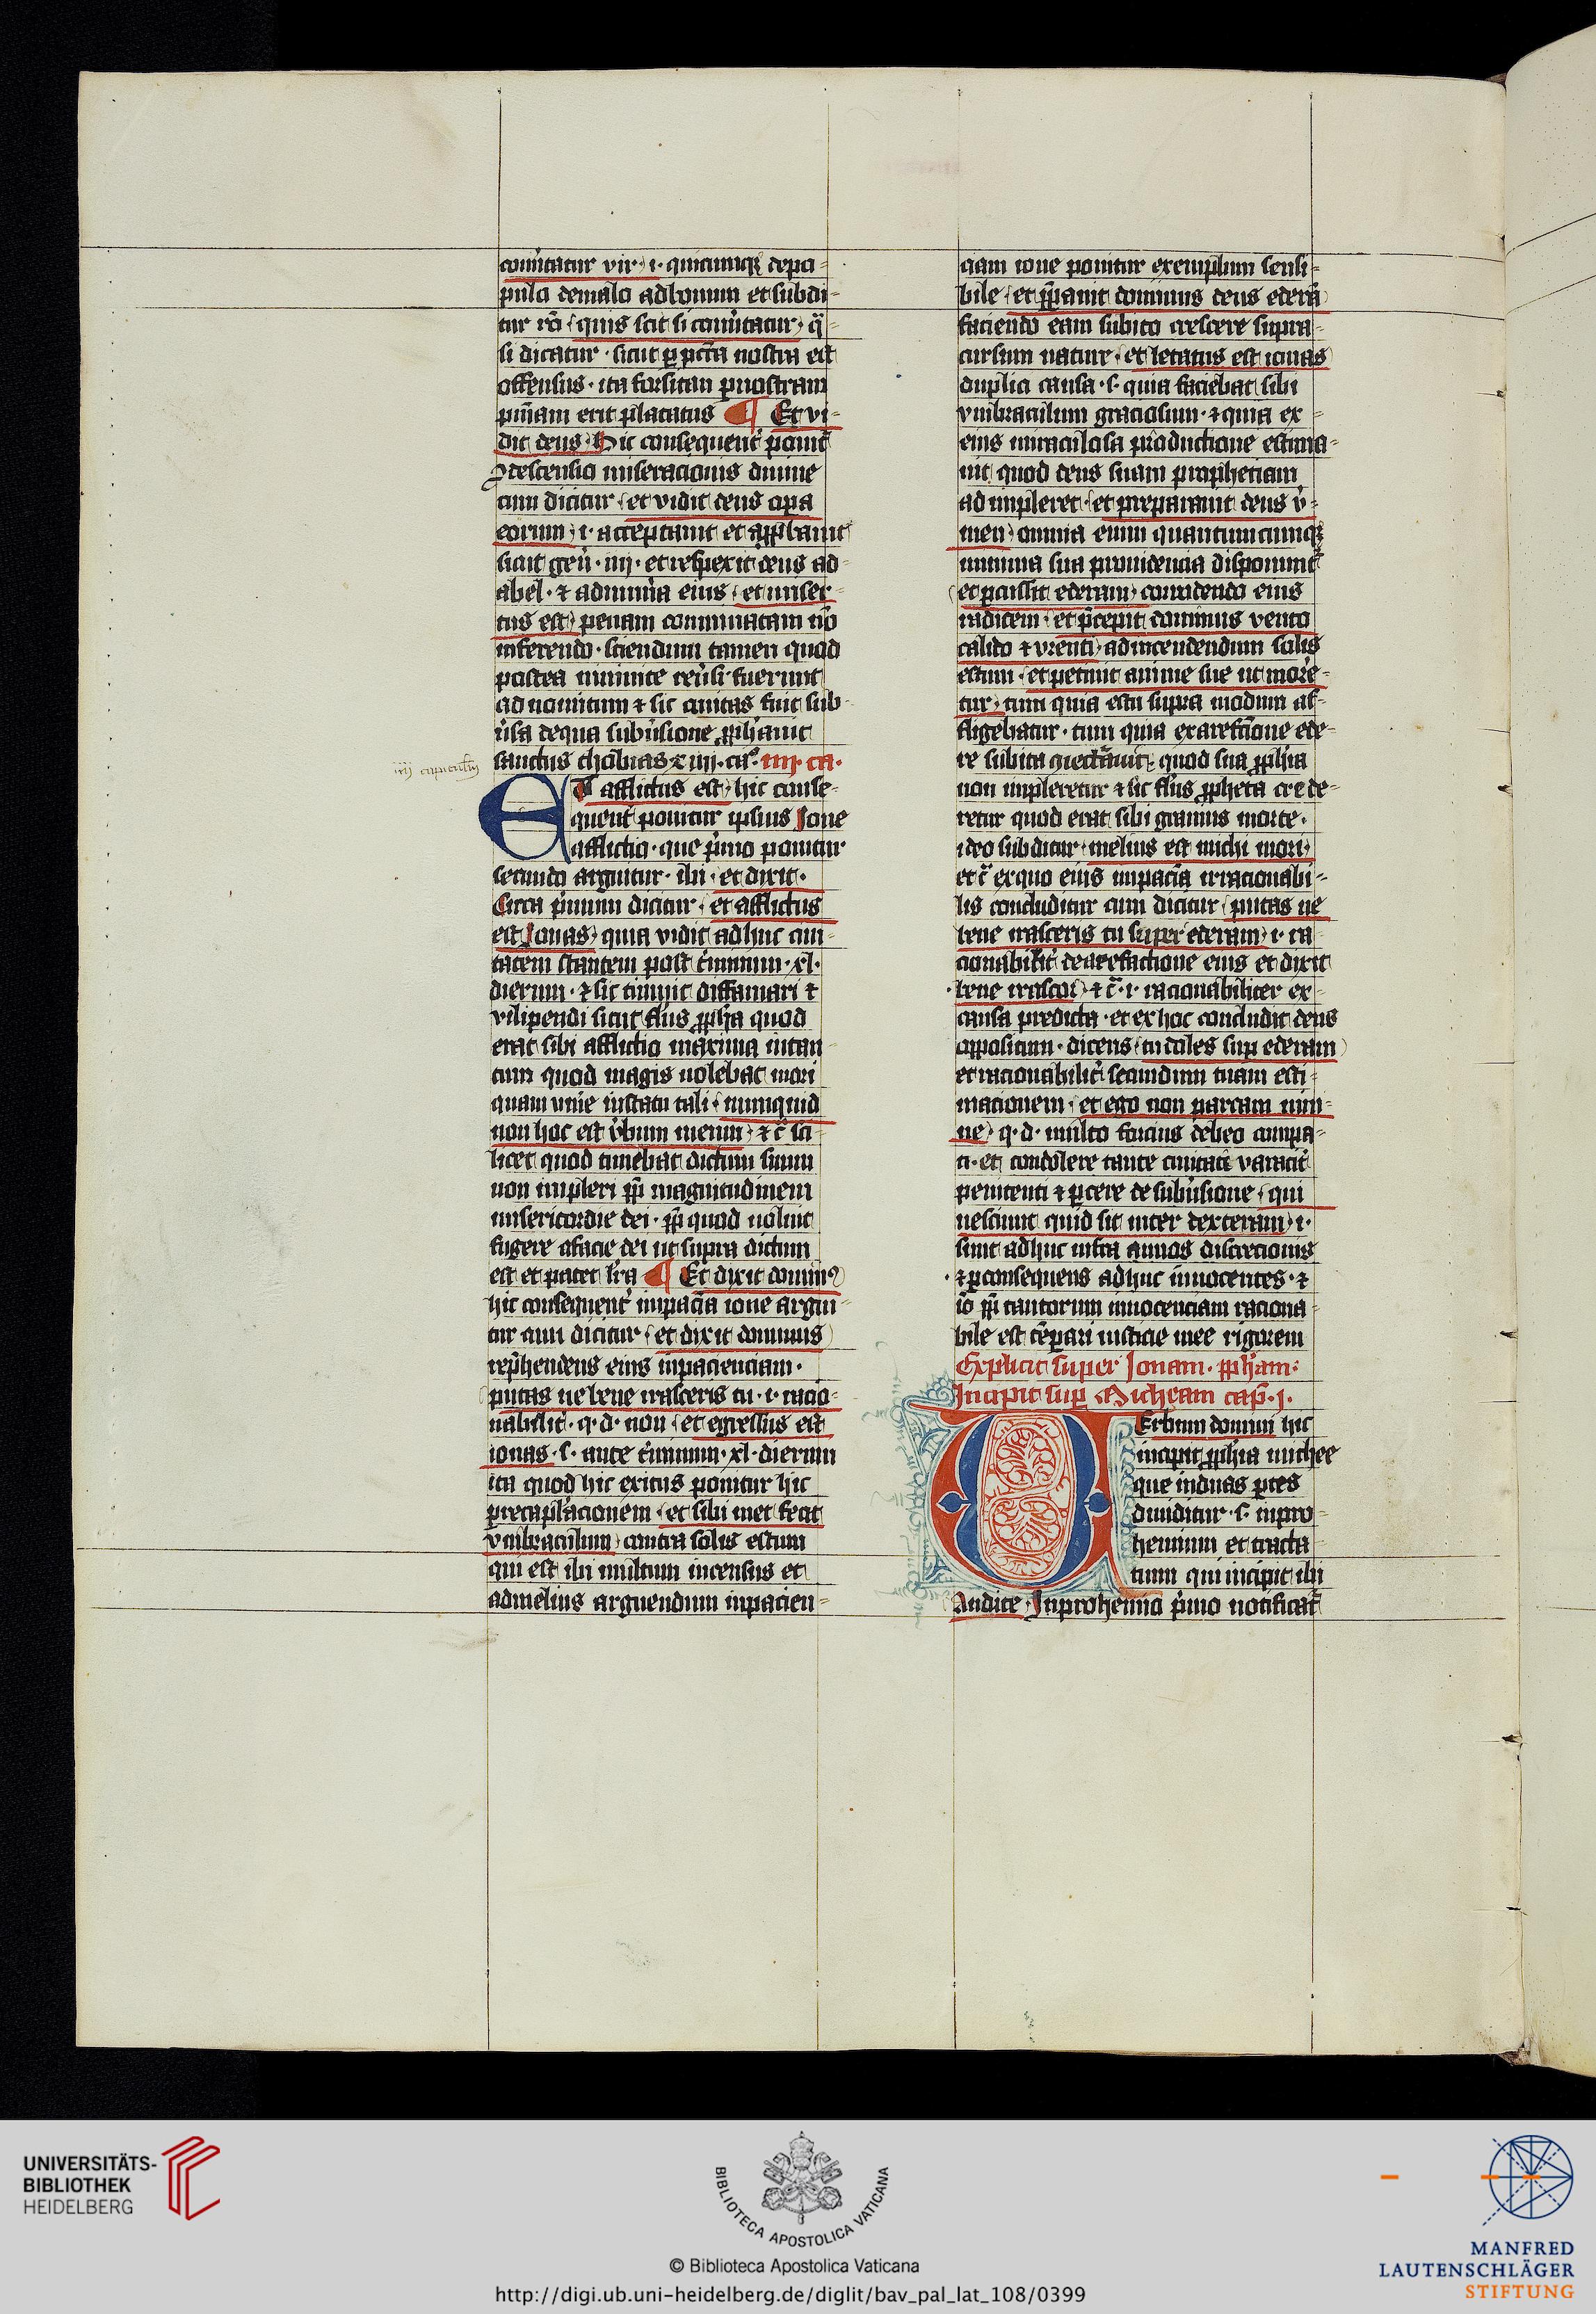 conuertatur vir i. quicumque depo-
pulo demalo adbonum et subdi-
tur quis scit si conuertatur q̈
si dicatur. sicut per pctā nostra est
offensus. ita forsitan pnostram
pniam erit placatus ¶ Et vi-
dit deus Hic consequent' ponit'
descensio miseracionis diuine
cum dicitur et vidit deus opa
eorum i. acceptauit et approbauit
sicut gen. iiij. et respexit deus ad
abel. et admuna eius et miser-
tus est penam comminatam nō
inferendo. sciendum tamen quod
postea niniuite reuersi fuerunt
ad uomitum et sic ciuitas fuit sub-
uersa dequa subuersione pphauit
sanctus thobias xiiij. ca° iiij. ca.
iiij capitulum
Et afflictus est hic conse-
quent' ponitur ipsius Jone
afflictio. que pmo ponitur
secundo arguitur. ibi. et dixit.
Circa pimum dicitur. et afflictus
est Jonas quia vidit adhuc ciui-
tatem stantem post t'minum. xl.
dierum. et sic timuit diffamari et
vilipendi sicut flus ppha quod
erat sibi afflictio maxima intan
tum quod magis uolebat mori
quam viuere instatu tali. numquid
non hoc est vbum meum et c̄ sci-
licet quod timebat dictum suum
non impleri pp magnitudinem
misericordie dei. pp quod uoluit
fugere afacie dei ut supra dictum
est et patet lra ¶ Et dixit domin9
hic consequent' impaciā ione argui-
tur cum dicitur et dixit dominus
rephendens eius inpacienciam.
putas ne bene irasceris tu. i. racio-
nabilit'. q. d. non et egressus est
ionas. s. ante t'minum. xl. dierum
ita quod hic exitus ponitur hic
precaplacionem. et sibi met fecit
vmbraculum contra solis estum
qui est ibi multum incensus et
admelius arguendum inpacien-
ciam ione ponitur exemplum sensi-
bile et ppauit dominus deus ederā
faciendo eam subito crescere supra-
cursum nature. et letatus est ionas
duplici causa. s. quia faciebat sibi
vmbraculum graciosum. et quia ex-
eius miraculosa productione estima-
uit quod deus suam prophetiam
ad impleret. et preparauit deus v-
mem omnia enim quantumcumque
minima sua prouidencia disponunt'
et pcussit ederam corrodendo eius
radicem. et pcepit dominus vento
calido et vrenti adincendendum solis
estum. et petiuit anime sue ut more-
tur tum quia estu supra modum af-
fligebatur. tum quia exarefactione ede-
re subita quod sua pphia
non impleretur et sic flus ppheta crede-
retur quod erat sibi grauius morte.
ideo subditur. melius est michi mori
et c̄ exquo eius impaciā irracionabi-
lis concluditur cum dicitur putas ne
bene irasceris tu super ederam i. ra
cionabilit' dearefactione eius et dixit
bene irascor et c̄. i. racionabiliter ex-
causa predicta. et ex hoc concludit deus
oppositum. dicens tu doles sup ederam
et racionabilit' secundum tuam esti-
macionem. et ego non parcam nini-
ue q. d. multo forcius debeo compa-
ti. et condolere tante ciuitati
penitenti et pcere de subuersione qui
nesciunt quid sit inter dexteram i.
sunt adhuc infra annos discrecionis
et pconsequens adhuc innocentes. et
io pp tantorum innocenciam raciona-
bile est tēpari iusticie mee rigorem
Explicit super Jonam. ppham:
Incipit sup Micheam cap. i.
Verbum domini hic
incipit pphia michee
que induas ptes
diuiditur. s. inpro-
hemium et tracta-
tum qui incipit ibi
Audite Inprohemio pmo notificat'
UNIVERSITÄTS-
BIBLIOTHEK
HEIDELBERG
BIBLIOTECA APOSTOLICA VATICANA
© Biblioteca Apostolica Vaticana
http://digi.ub.uni-heidelberg.de/diglit/bav_pal_lat_108/0399
MANFRED
LAUTENSCHLÄGER
STIFTUNG